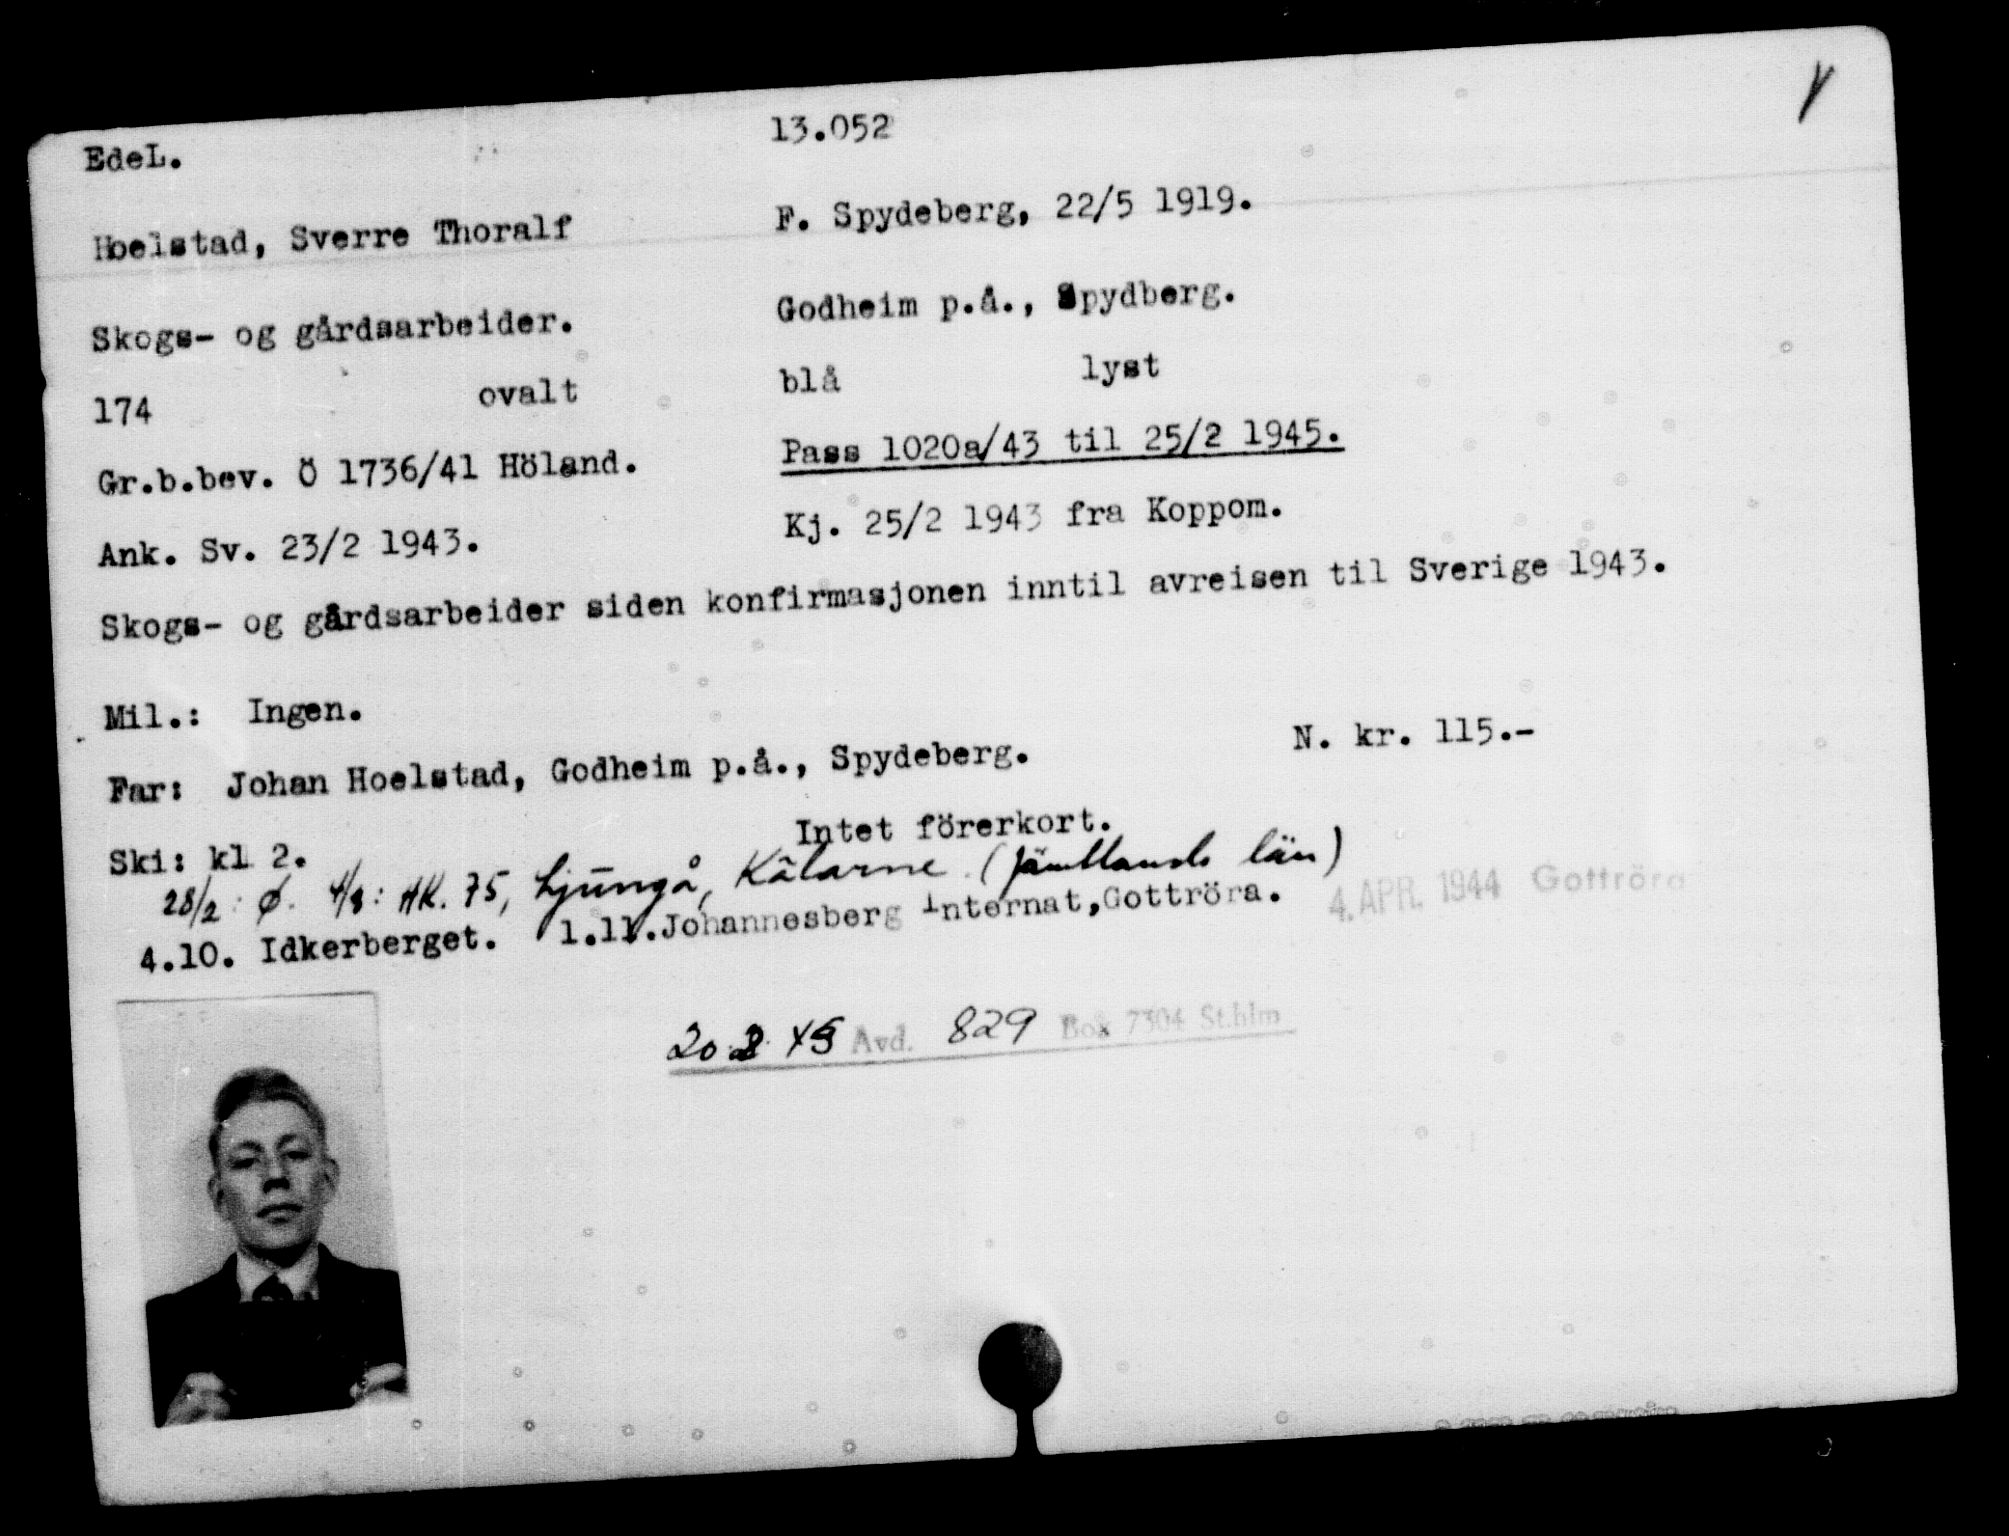 EdeL. 13.052
Hoelstad, Sverre Thoralf F. Spydeberg, 22/5 1919.
Skogs- og gårdsarbeider. Godheim p.å., Spydberg.
174 ovalt blå lyst
Gr.b.bev. Ö 1736/41 Höland. Pass 1020a/43 til 25/2 1945.
Ank. Sv. 23/2 1943. Kj. 25/2 1943 fra Koppom.
Skogs- og gårdsarbeider siden konfirmasjonen inntil avreisen til Sverige 1943.
Mil.: Ingen. N. kr. 115.-
Far: Johan Hoelstad, Godheim p.å., Spydeberg.
Ski: kl 2. Intet förerkort.
28/2: Ø. 4/3: AK. 75, Ljungå, Kälarne (Jämtlands län)
4.10. Idkerberget. 1.11.Johannesberg Internat,Gottröra. 4. APR. 1944 Gottröra
20. 2 45 Avd. 829 Box 7304 St.hlm